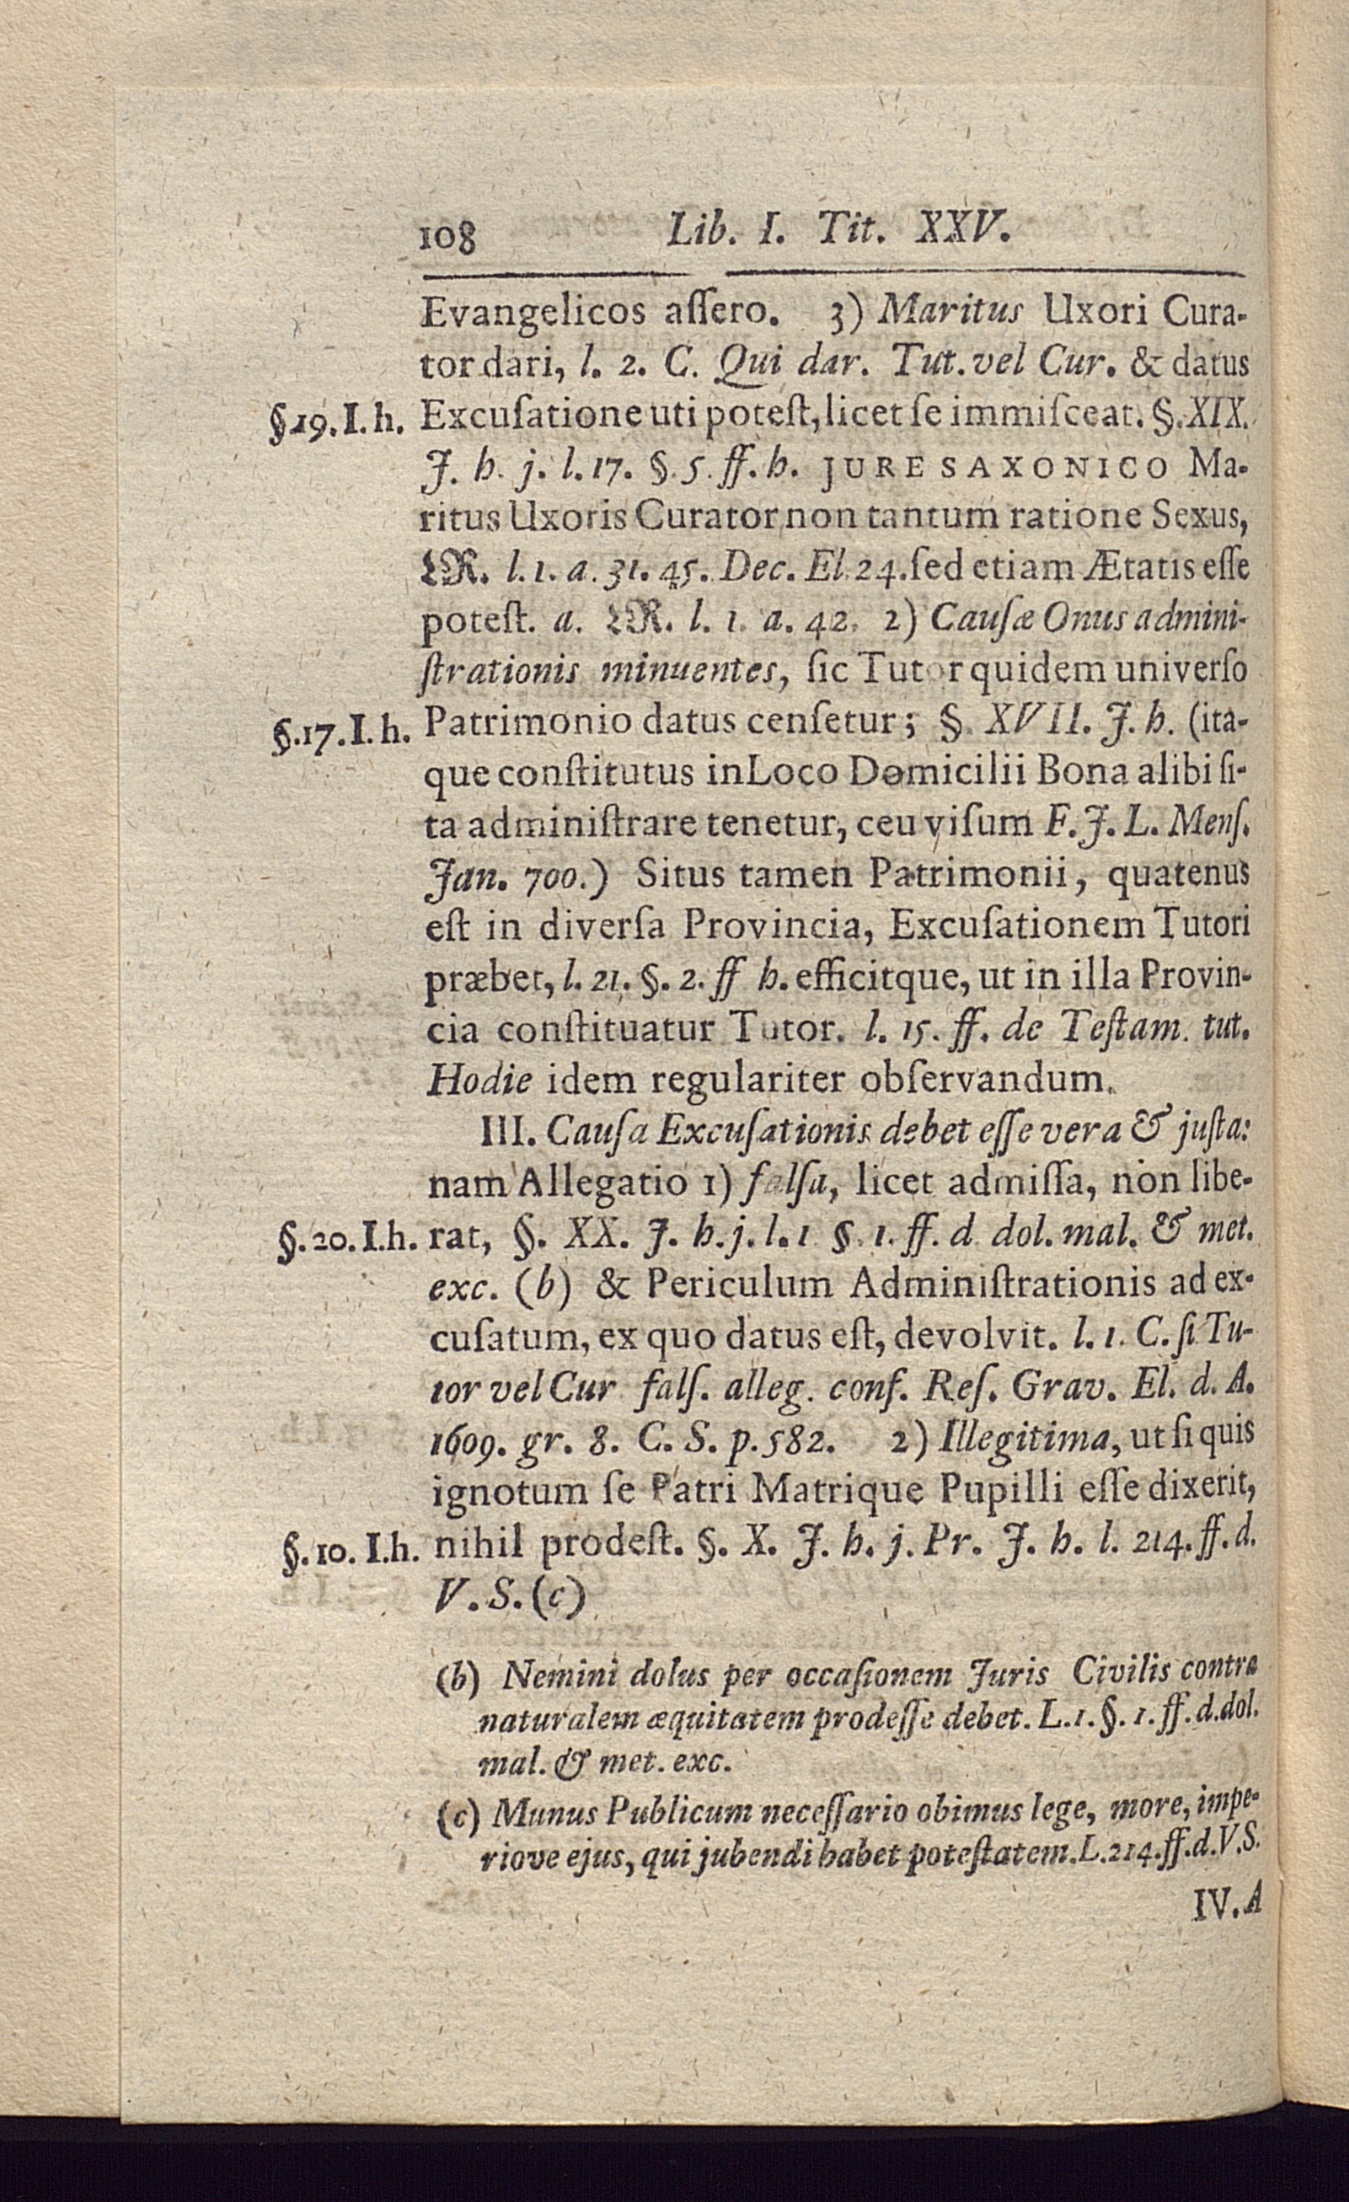 108 Lib. I. Tit. XXV.
Evangelicos aſſero. 3) Maritus Uxori Cura-
tor dari, l. 2. C. Qui dar. Tut. vel Cur. & datus
§19. I. h. Excuſatione uti poteſt, licet ſe immiſceat. §. XIX.
J. h. j. l. 17. §. 5. ff. h. JURE SAXONICO Ma-
ritus Uxoris Curator non tantum ratione Sexus,
LR. l. 1. a. 31. 45. Dec. El. 24. ſed etiam Ætatis eſſe
poteſt. a. LR. l. 1. a. 42. 2) Cauſæ Onus admini-
ſtrationis minuentes, ſic Tutor quidem univerſo
§. 17. I. h. Patrimonio datus cenſetur; §. XVII. J. h. (ita-
que conſtitutus in Loco Domicilii Bona alibi ſi-
ta adminiſtrare tenetur, ceu viſum F. J. L. Menſ.
Jan. 700.) Situs tamen Patrimonii, quatenus
eſt in diverſa Provincia, Excuſationem Tutori
præbet, l. 21. §. 2. ff h. efficitque, ut in illa Provin-
cia conſtituatur Tutor. l. 15. ff. de Teſtam. tut.
Hodie idem regulariter obſervandum.
III. Cauſa Excuſationis debet eſſe vera & juſta:
nam Allegatio 1) falſa, licet admiſſa, non libe-
§. 20. I. h. rat, §. XX. J. h. j. l. 1 §. 1. ff. d dol. mal. & met.
exc. (b) & Periculum Adminiſtrationis ad ex-
cuſatum, ex quo datus eſt, devolvit. l. 1. C. ſi Tu-
tor vel Cur falſ. alleg. conf. Reſ. Grav. El. d. A.
1609. gr. 8. C. S. p. 582. 2) Illegitima, ut ſi quis
ignotum ſe Patri Matrique Pupilli eſſe dixerit,
§. 10. I. h. nihil prodeſt. §. X. J. h. j. Pr. J. h. l. 214. ff. d.
V. S. (c)
(b) Nemini dolus per occaſionem Juris Civilis contra
naturalem æquitatem prodeſſe debet. L. 1. §. 1. ff. d. dol.
mal. & met. exc.
(c) Munus Publicum neceſſario obimus lege, more, impe-
riove ejus, qui jubendi habet poteſtatem. L. 214. ff. d. V. S.
IV. A